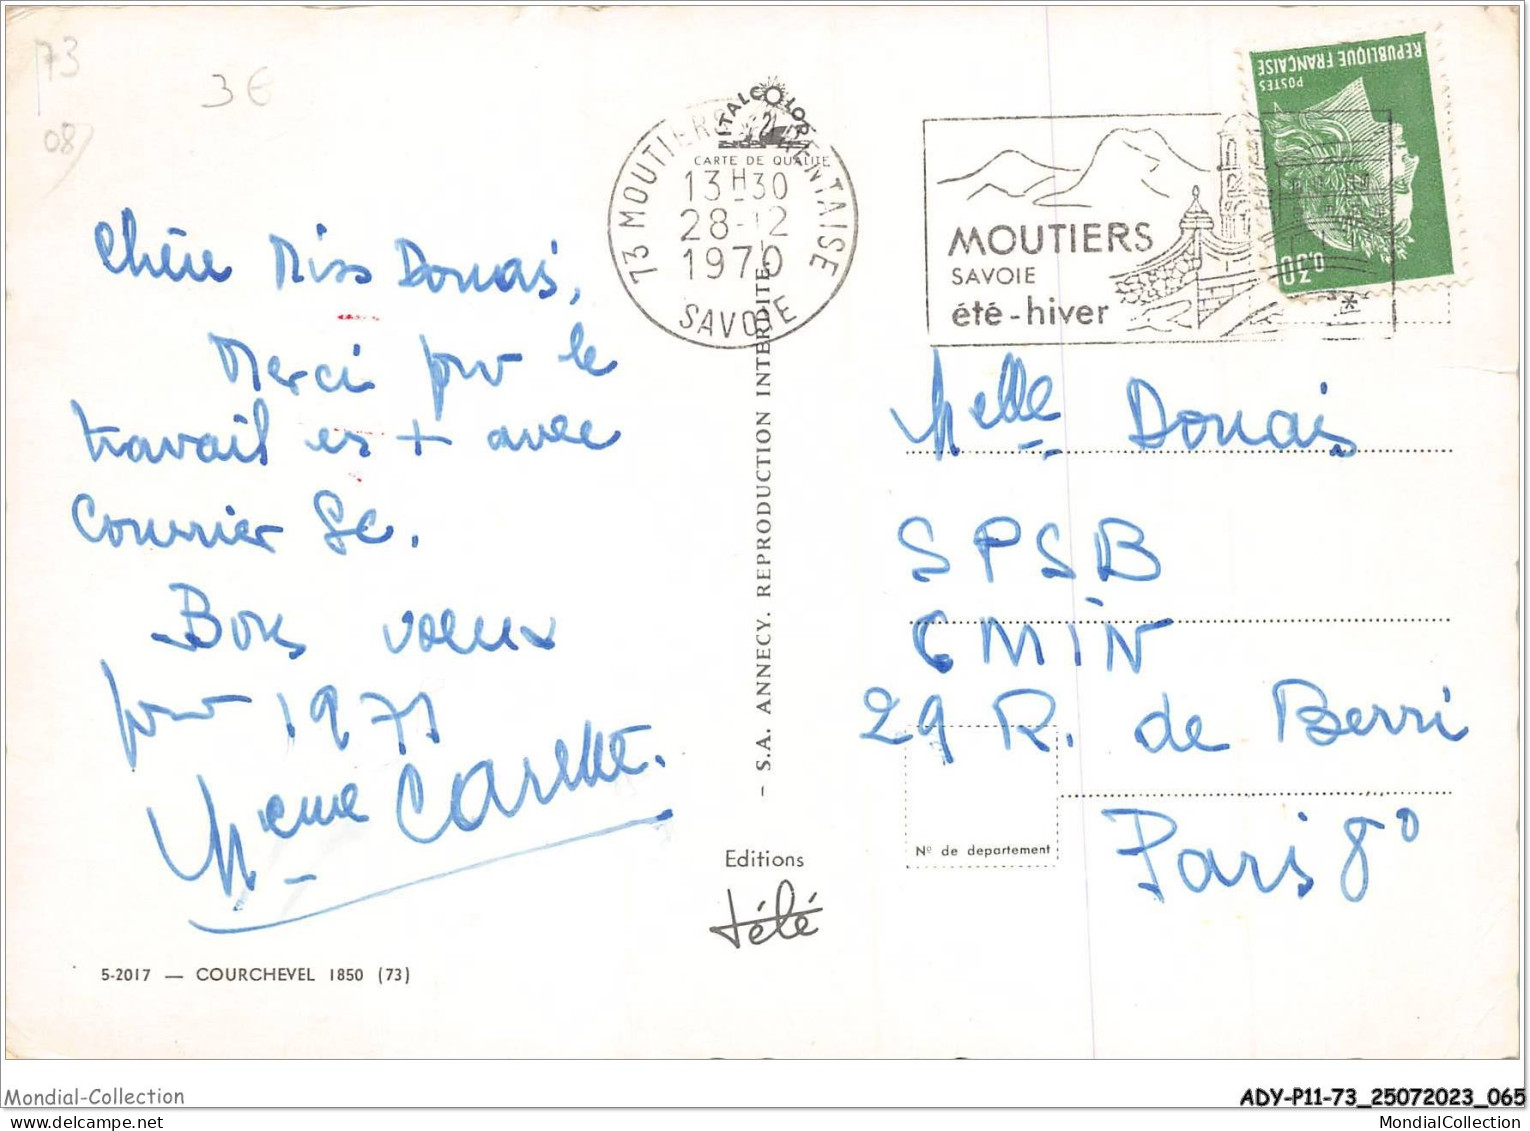 73
3€
08
Chère Miss Douais,
Merci pour le
travail es + avec
Courrier Sc.
Bons voeux
pour 1971
Meme Carette.
5-2017 — COURCHEVEL 1850 (73)
ITALCOLOR
CARTE DE QUALITE
73 MOUTIERS TARENTAISE
13H30
28-12
1970
SAVOIE
– S.A. ANNECY. REPRODUCTION INTERDITE.
Editions
télé
MOUTIERS
SAVOIE
été-hiver
POSTES
REPUBLIQUE FRANÇAISE
0,30
Melle Douais
SPSB
CMIN
29 R. de Berri
Paris 8°
Nº de departement
Mondial-Collection
ADY-P11-73_25072023_065
www.mondial-collection.fr
MondialCollection